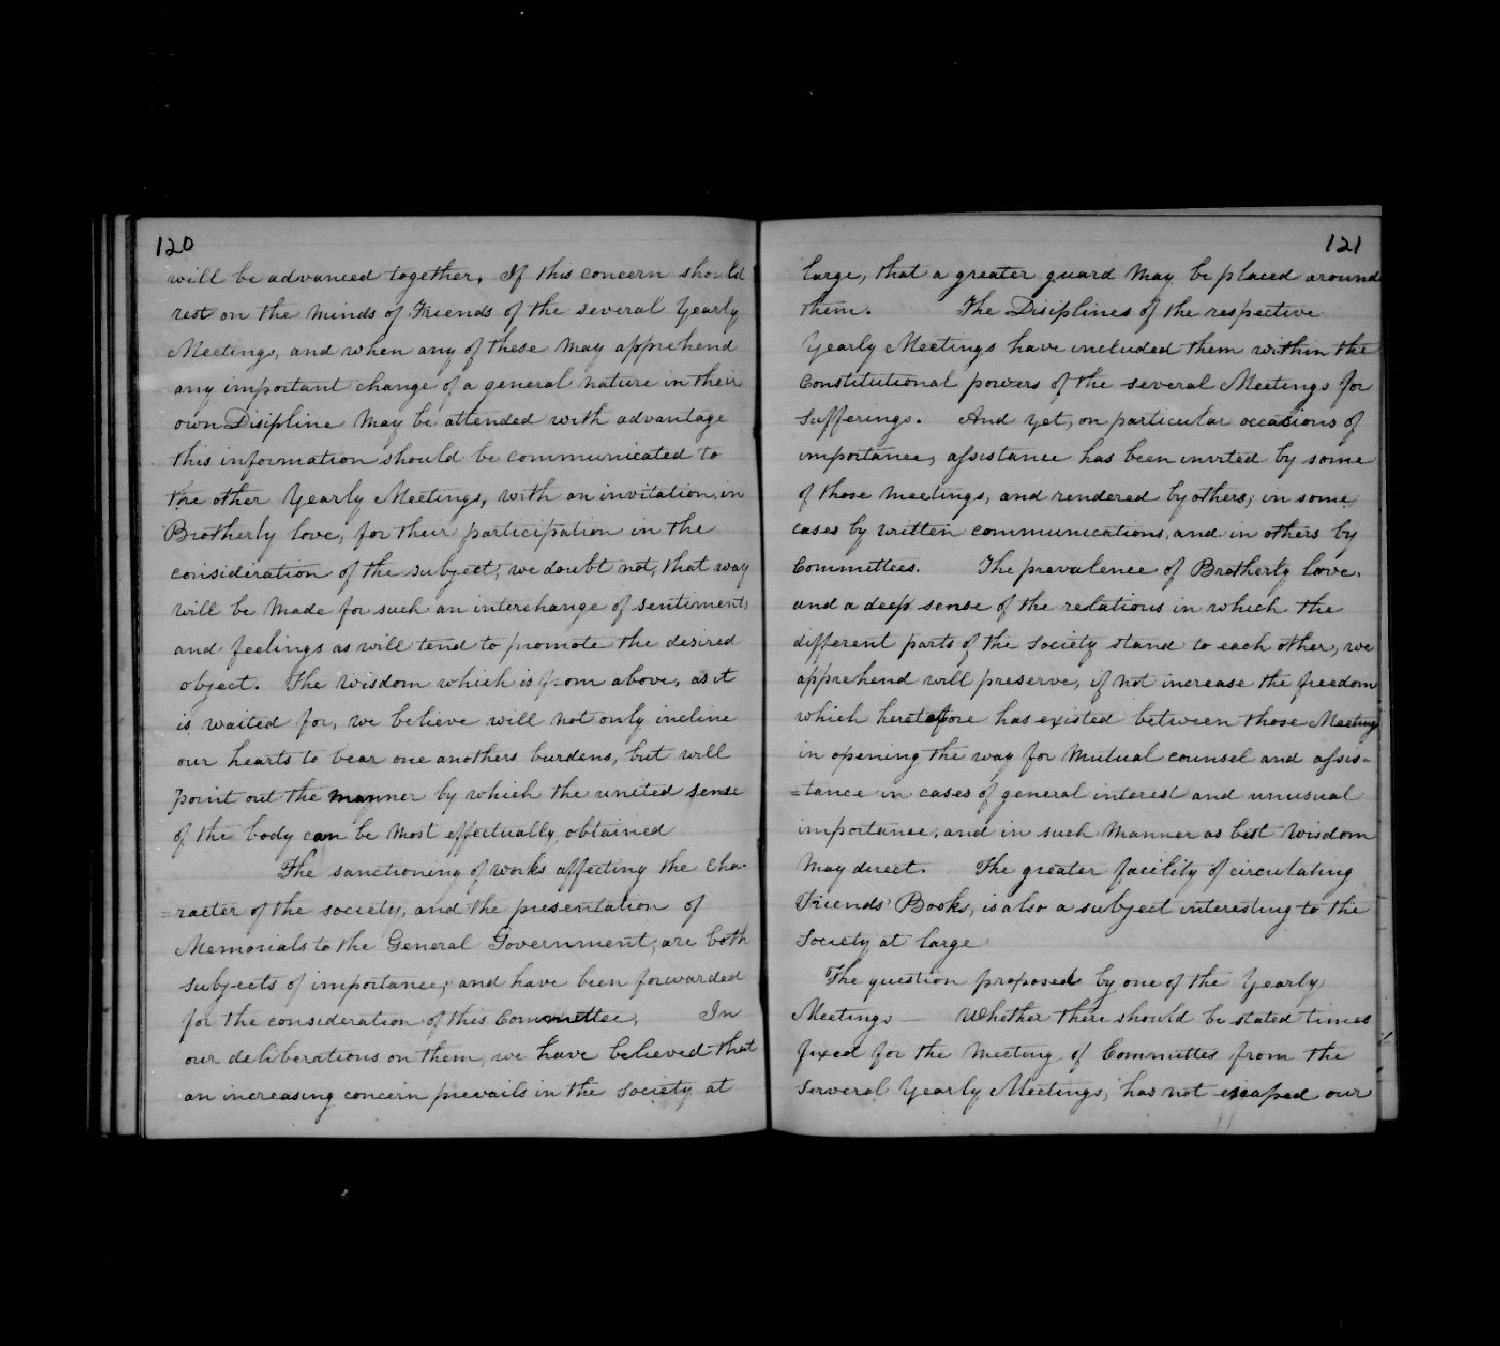 120
will be advanced together. If this concern should
rest on the minds of Friends of the several Yearly
Meetings, and when any of these may apprehend
any important change of a general nature in their
own Disipline may be attended with advantage
this information should be communicated to
the other Yearly Meetings, with an invitation, in
Brotherly love, for their participation in the
consideration of the subject; we doubt not, that way
will be made for such an interchange of sentiments
and feelings as will tend to promote the desired
object. The wisdom which is from above, as it
is waited for, we believe will not only incline
our hearts to bear one anothers burdens, but will
point out the manner by which the united sense
of the body can be most effectually obtained
The sanctioning of works affecting the cha-
=racter of the society, and the presentation of
Memorials to the General Government, are both
subjects of importance; and have been forwarded
for the consideration of this Committee. In
our deliberations on them, we have believed that
an increasing concern prevails in the society at
121
large, that a greater guard may be placed around
them. The Disiplines of the respective
Yearly Meetings have included them within the
Constitutional powers of the several Meetings for
Sufferings. And yet, on particular occasions of
importance, assistance has been invited by some
of those meetings, and rendered by others; in some
cases by written communications, and in others by
Committees. The prevalence of Brotherly love,
and a deep sense of the relations in which the
different parts of the society stand to each other, we
apprehend will preserve, if not increase the freedom
which heretofore has existed between those Meetings
in opening the way for mutual counsel and assis-
=tance in cases of general interest and unusual
importance; and in such manner as best wisdom
may direct. The greater facility of circulating
Friends' Books, is also a subject interesting to the
Society at large
The question proposed by one of the Yearly
Meetings — Whether there should be stated times
fixed for the meeting of Committes from the
serveral Yearly Meetings, has not escaped our